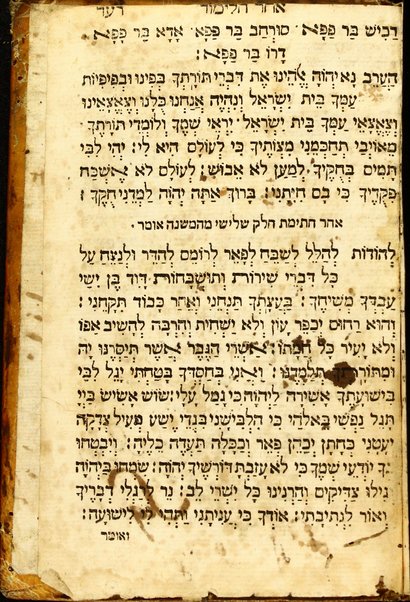 אחר הלימוד רעד
דכיש בר פפא׃ סורחב בר פפא׃ אדא בר פפא׃
דרו בר פפא׃
הערב נא יהוה אלהינו את דברי תורתך בפינו ובפיפיות
עמך בית ישראל ונהיה אנחנו כלנו וצאצאינו
וצאצאי עמך בית ישראל יראי שמך ולומדי תורתך׃
מאויבי תחכמני מצותיך כי לעולם היא לי׃ יהי לבי
תמים בחקיך למען לא אבוש׃ לעולם לא אשכח
פקודיך כי בם חייתני׃ ברוך אתה יהוה למדני חקיך׃
אחר חתימת חלק שלישי מהמשנה אומר׃
להודות להלל לשבח לפאר לרומם להדר ולנצח על
כל דברי שירות ותושבחות דוד בן ישי
עבדך משיחך׃ בעצתך תנחני ואחר כבוד תקחני׃
והוא רחום יכפר עון ולא ישחית והרבה להשיב אפו
ולא יעיר כל חמתו׃ אשרי הגבר אשר תיסרנו יה
ומתורתך תלמדנו׃ ואני בחסדך בטחתי יגל לבי
בישועתך אשירה ליהוה כי גמל עלי׃ שוש אשיש ביי
תגל נפשי באלהי כי הלבישני בגדי ישע מעיל צדקה
יעטני כחתן יכהן פאר וככלה תעדה כליה׃ ויבטחו
בך יודעי שמך כי לא עזבת דורשיך יהוה׃ שמחו ביהוה
גילו צדיקים והרנינו כל ישרי לב׃ נר לרגלי דבריך
ואור לנתיבתי׃ אודך כי עניתני ותהי לי לישועה׃
ואומר